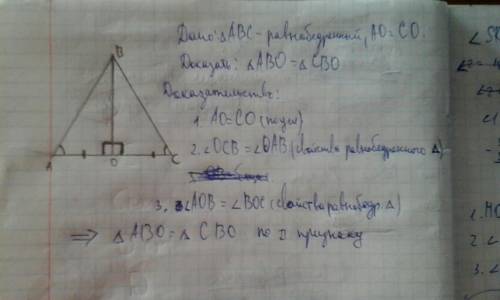 Дано: △ABC - равнобедренный, AO=CO.
Доказать: △ABO = △CBO
Доказательство:
B
1. AO=CO (по усл)
2. ∠OCB = ∠OAB (свойства равнобедренного △)
A O C
3. ∠AOB = ∠BOC (свойства равнобедр. △)
⇒ △ABO = △CBO по II признаку
∠
∠
1.
2. ∠
3. ∠